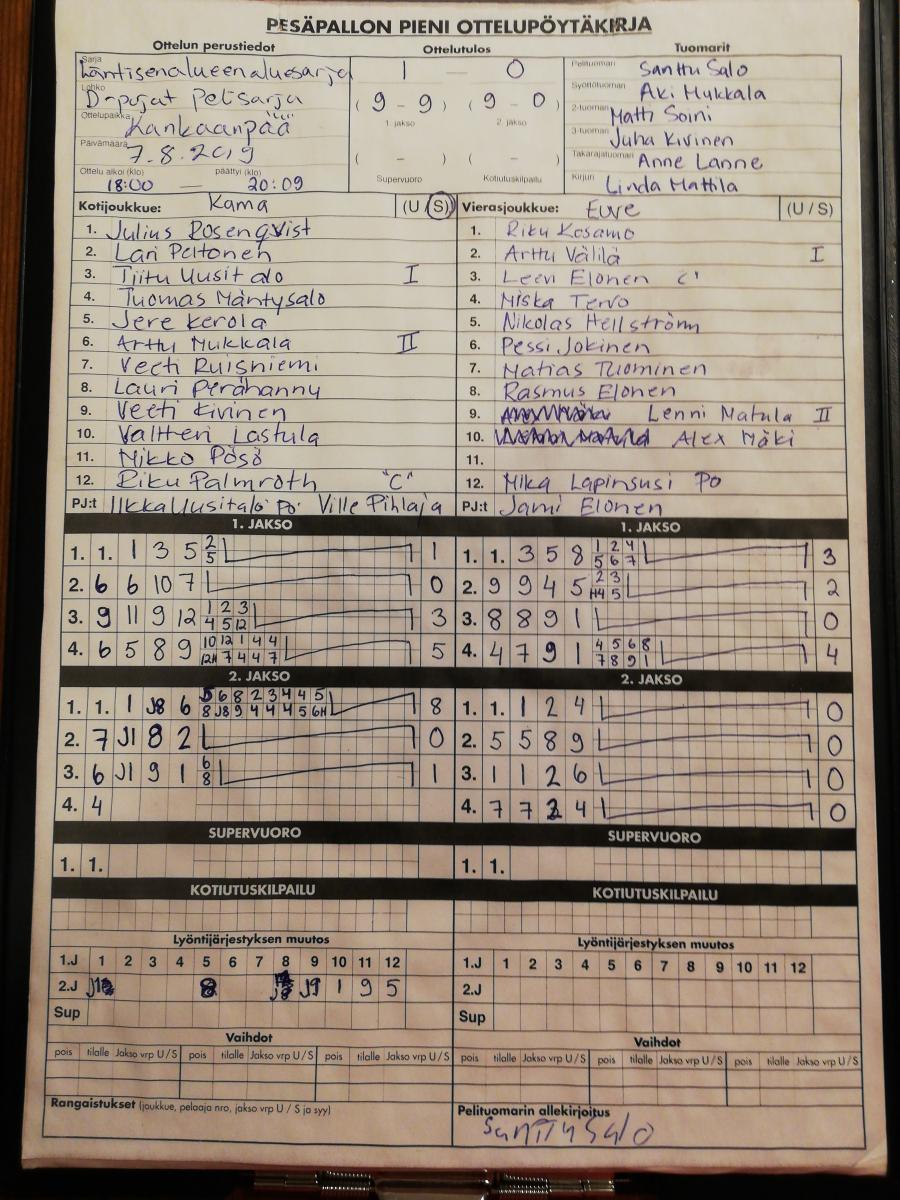 PESÄPALLON PIENI OTTELUPÖYTÄKIRJA
Ottelun perustiedot Ottelutulos Tuomarit
Sarja Läntisenalueenaluesarja 1 — 0 Pelituomari Santtu Salo
Lohko D-pojat Pelisarja (9 - 9) (9 - 0) Syöttötuomari Aki Mukkala
Ottelupaikka Kankaanpää 1. jakso 2. jakso 2-tuomari Matti Soini
Päivämäärä 7.8.2019 3-tuomari Juha Kivinen
Ottelu alkoi (klo) päättyi (klo) ( - ) ( - ) Takarajatuomari Anne Lanne
18:00 — 20:09 Supervuoro Kotiutuskilpailu Kirjuri Linda Mattila
Kotijoukkue: Kama (U/S) Vierasjoukkue: Euve (U/S)
1. Julius Rosenqvist 1. Riku Kosamo
2. Lari Peltonen 2. Arttu Välilä I
3. Tiitu Uusitalo I 3. Leevi Elonen C'
4. Tuomas Mäntysalo 4. Miska Tervo
5. Jere Kerola 5. Nikolas Hellström
6. Arttu Mukkala II 6. Pessi Jokinen
7. Veeti Ruisniemi 7. Matias Tuominen
8. Lauri Perähannu 8. Rasmus Elonen
9. Veeti Kivinen 9. Lenni Matula II
10. Valtteri Lastula 10. Alex Mäki
11. Mikko Pösö 11.
12. Riku Palmroth "C" 12. Mika Lapinsusi Po
PJ:t Ilkka Uusitalo Po. Ville Pihlaja PJ:t Jami Elonen
1. JAKSO 1. JAKSO
1. 1. 1 3 5 2 5 1 1. 1. 3 5 8 1 2 4 5 6 7 3
2. 6 6 10 7 0 2. 9 9 4 5 2 3 H4 5 2
3. 9 11 9 12 1 2 3 4 5 12 3 3. 8 8 9 1 0
4. 6 5 8 9 10 12 1 4 4 12H 7 4 4 7 5 4. 4 7 9 1 4 5 6 8 7 8 9 1 4
2. JAKSO 2. JAKSO
1. 1. 1 J8 6 5 6 8 2 3 4 4 5 8 J8 9 4 4 4 5 6H 8 1. 1. 1 2 4 0
2. 7 J1 8 2 0 2. 5 5 8 9 0
3. 6 J1 9 1 6 8 1 3. 1 1 2 6 0
4. 4 4. 7 7 2 4 0
SUPERVUORO SUPERVUORO
1. 1. 1. 1.
KOTIUTUSKILPAILU KOTIUTUSKILPAILU
Lyöntijärjestyksen muutos Lyöntijärjestyksen muutos
1.J 1 2 3 4 5 6 7 8 9 10 11 12 1.J 1 2 3 4 5 6 7 8 9 10 11 12
2.J 8 J8 J9 1 9 5 2.J
Sup Sup
Vaihdot Vaihdot
pois tilalle Jakso vrp U/S pois tilalle Jakso vrp U/S pois tilalle Jakso vrp U/S pois tilalle Jakso vrp U/S pois tilalle Jakso vrp U/S pois tilalle Jakso vrp U/S
Rangaistukset (joukkue, pelaaja nro, jakso vrp U / S ja syy) Pelituomarin allekirjoitus
Santtu Salo